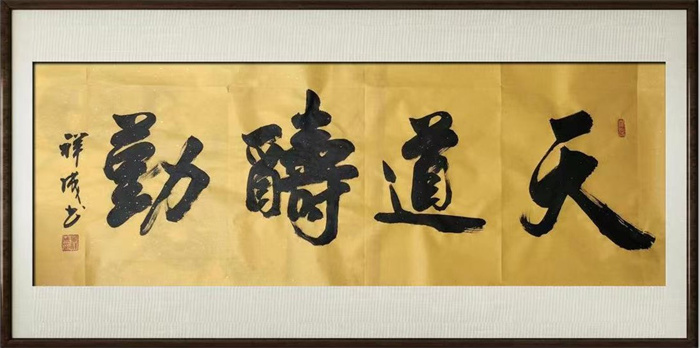 天道醻勤
祥成书